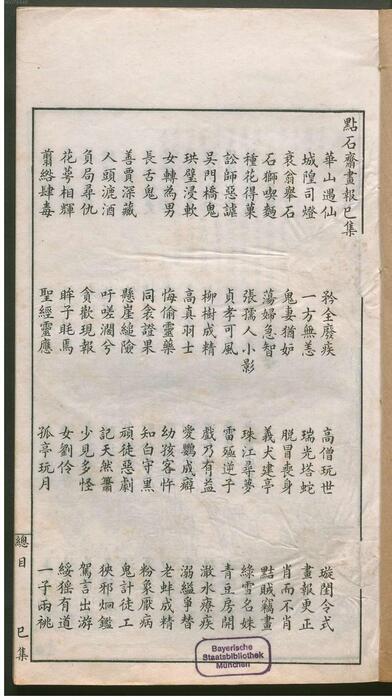 點石齋畫報巳集
華山遇仙 矜全廢疾 高僧玩世 璇閨令式
城隍司燈 一方無恙 瑞光塔蛇 畫報更正
衰翁舉石 鬼妻猶妒 脫冒喪身 肖而不肖
石獅喫麵 蕩婦急智 義犬建亭 黠賊竊畫
種花得菓 張孺人小影 珠江尋夢 綠雪名姝
訟師惡謔 貞孝可風 雷殛逆子 青豆房開
吳門橋鬼 柳樹成精 戲乃有益 潑水療疾
珙璧浸軟 高真羽士 愛鸚成癖 溺縊爭替
女轉為男 悔偷靈藥 幼孩客忤 老蚌成精
長舌鬼 同衾證果 知白守黑 粉象厭病
善賈深藏 懸崖縋險 頑徒惡劇 鬼計徒工
人頭漉酒 吁嗟濶兮 記天然簫 狹邪炯鑑
負局尋仇 貪歡現報 少見多怪 駕言出游
花萼相輝 眸子眊焉 女劉伶 綏猺有道
翦綹肆毒 聖經靈應 孤亭玩月 一子兩祧
總目 巳集
Bayerische
Staatsbibliothek
München